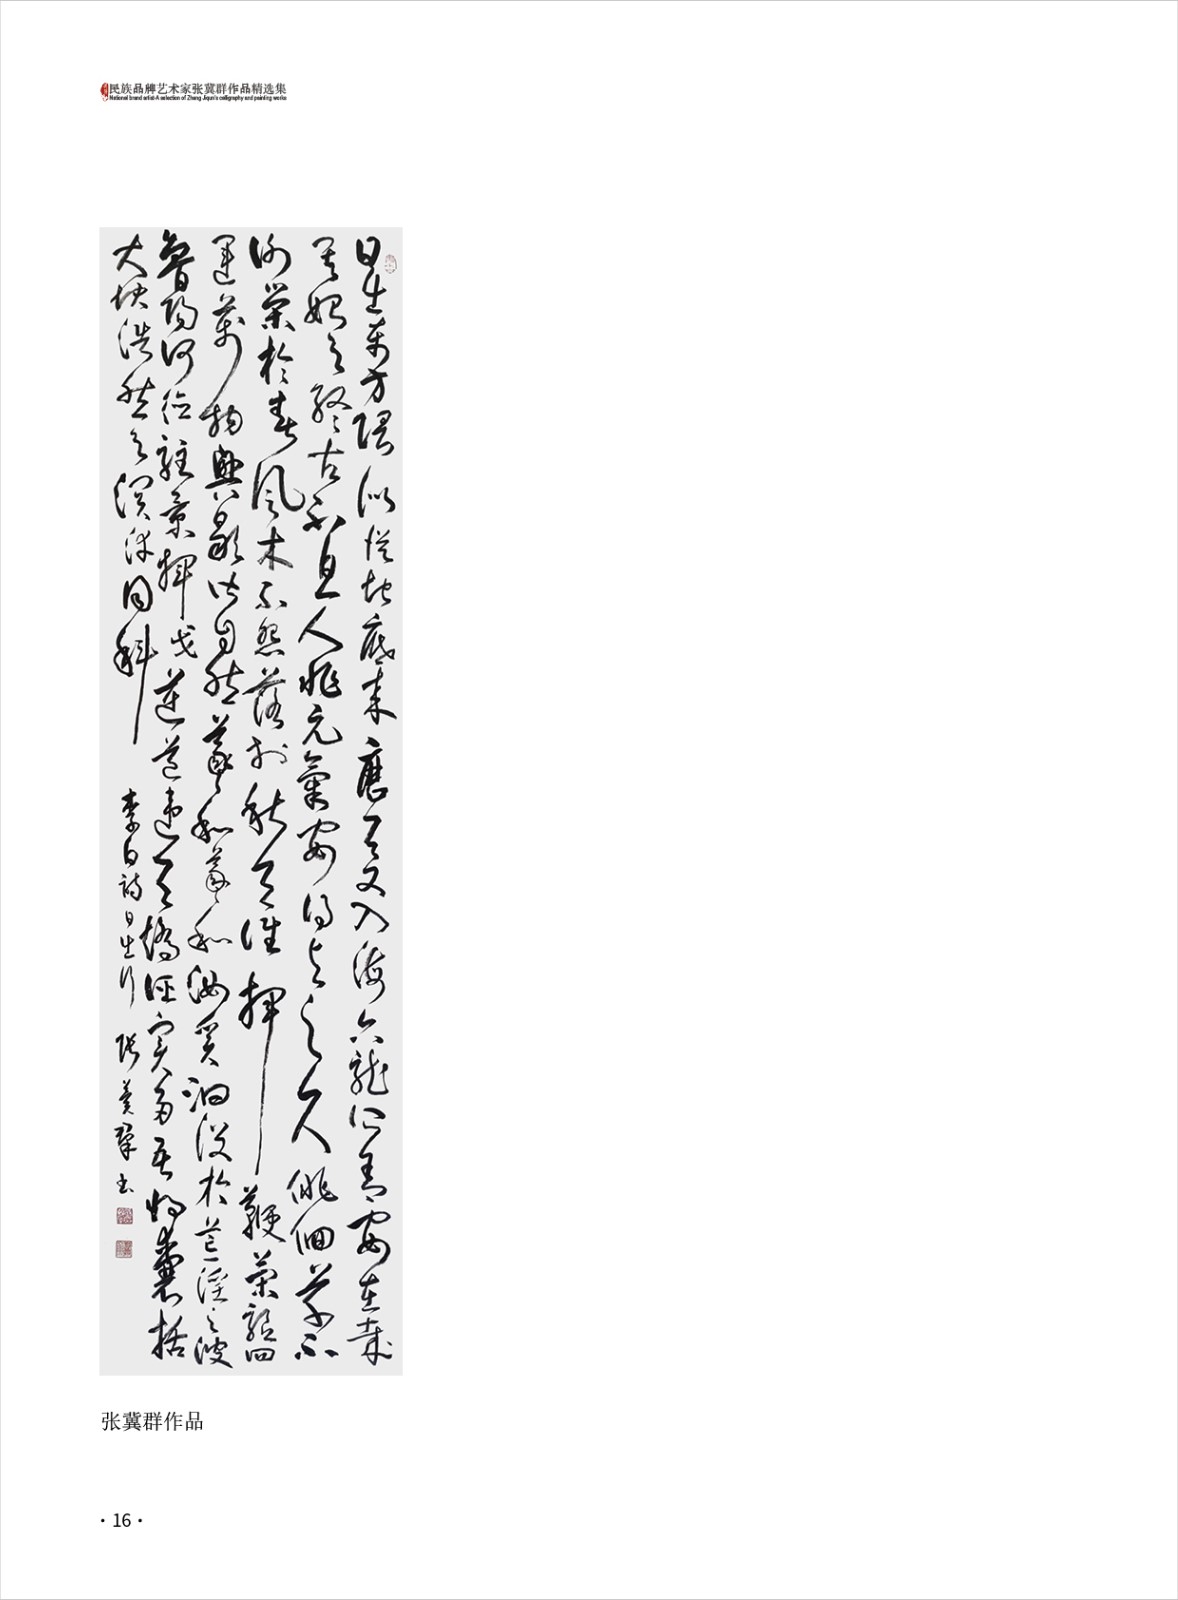 民族品牌艺术家张冀群作品精选集
National brand artist-A selection of Zhang Jiqun's calligraphy and painting works
日出東方隈似從地底來歷天又入海六龍所舍安在哉
其始與終古不息人非元氣安得與之久徘徊草不
謝榮於春風木不怨落於秋天誰揮鞭策驅四
運萬物興歇皆自然羲和羲和汝奚汩沒於荒淫之波
魯陽何德駐景揮戈逆道違天矯誣實多吾將囊括
大塊浩然與溟涬同科 李白詩日出行 張冀群書
张冀群作品
·16·